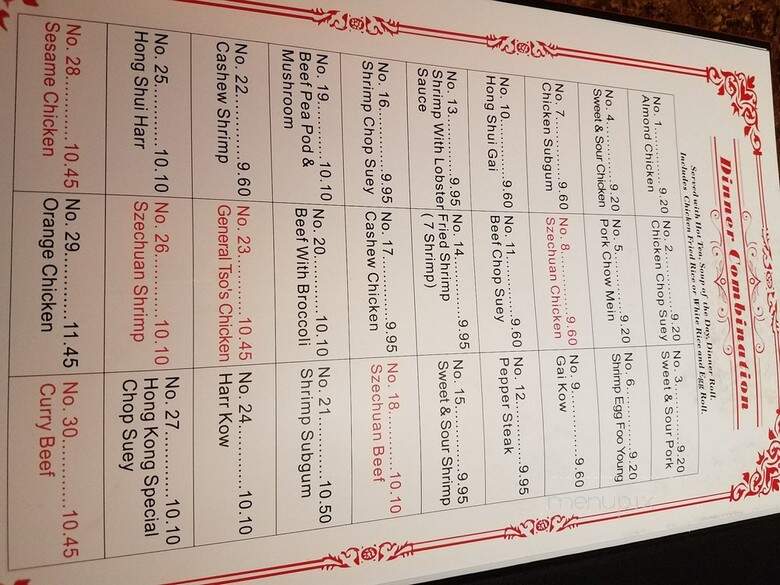 Dinner Combination
Served with Hot Tea, Soup of the Day, Dinner Roll.
Includes Chicken Fried Rice or White Rice and Egg Roll.
No. 1.............. 9.20
Almond Chicken
No. 2..............9.20
Chicken Chop Suey
No. 3..............9.20
Sweet & Sour Pork
No. 4..............9.20
Sweet & Sour Chicken
No. 5..............9.20
Pork Chow Mein
No. 6..............9.20
Shrimp Egg Foo Young
No. 7..............9.60
Chicken Subgum
No. 8..............9.60
Szechuan Chicken
No. 9..............9.60
Gai Kow
No. 10..............9.60
Hong Shui Gai
No. 11..............9.60
Beef Chop Suey
No. 12..............9.95
Pepper Steak
No. 13..............9.95
Shrimp With Lobster
Sauce
No. 14..............9.95
Fried Shrimp
( 7 Shrimp)
No. 15..............9.95
Sweet & Sour Shrimp
No. 16..............9.95
Shrimp Chop Suey
No. 17..............9.95
Cashew Chicken
No. 18..............10.10
Szechuan Beef
No. 19..............10.10
Beef Pea Pod &
Mushroom
No. 20..............10.10
Beef With Broccoli
No. 21..............10.50
Shrimp Subgum
No. 22..............9.60
Cashew Shrimp
No. 23..............10.45
General Tso's Chicken
No. 24..............10.10
Harr Kow
No. 25..............10.10
Hong Shui Harr
No. 26..............10.10
Szechuan Shrimp
No. 27..............10.10
Hong Kong Special
Chop Suey
No. 28..............10.45
Sesame Chicken
No. 29..............11.45
Orange Chicken
No. 30..............10.45
Curry Beef
menupix